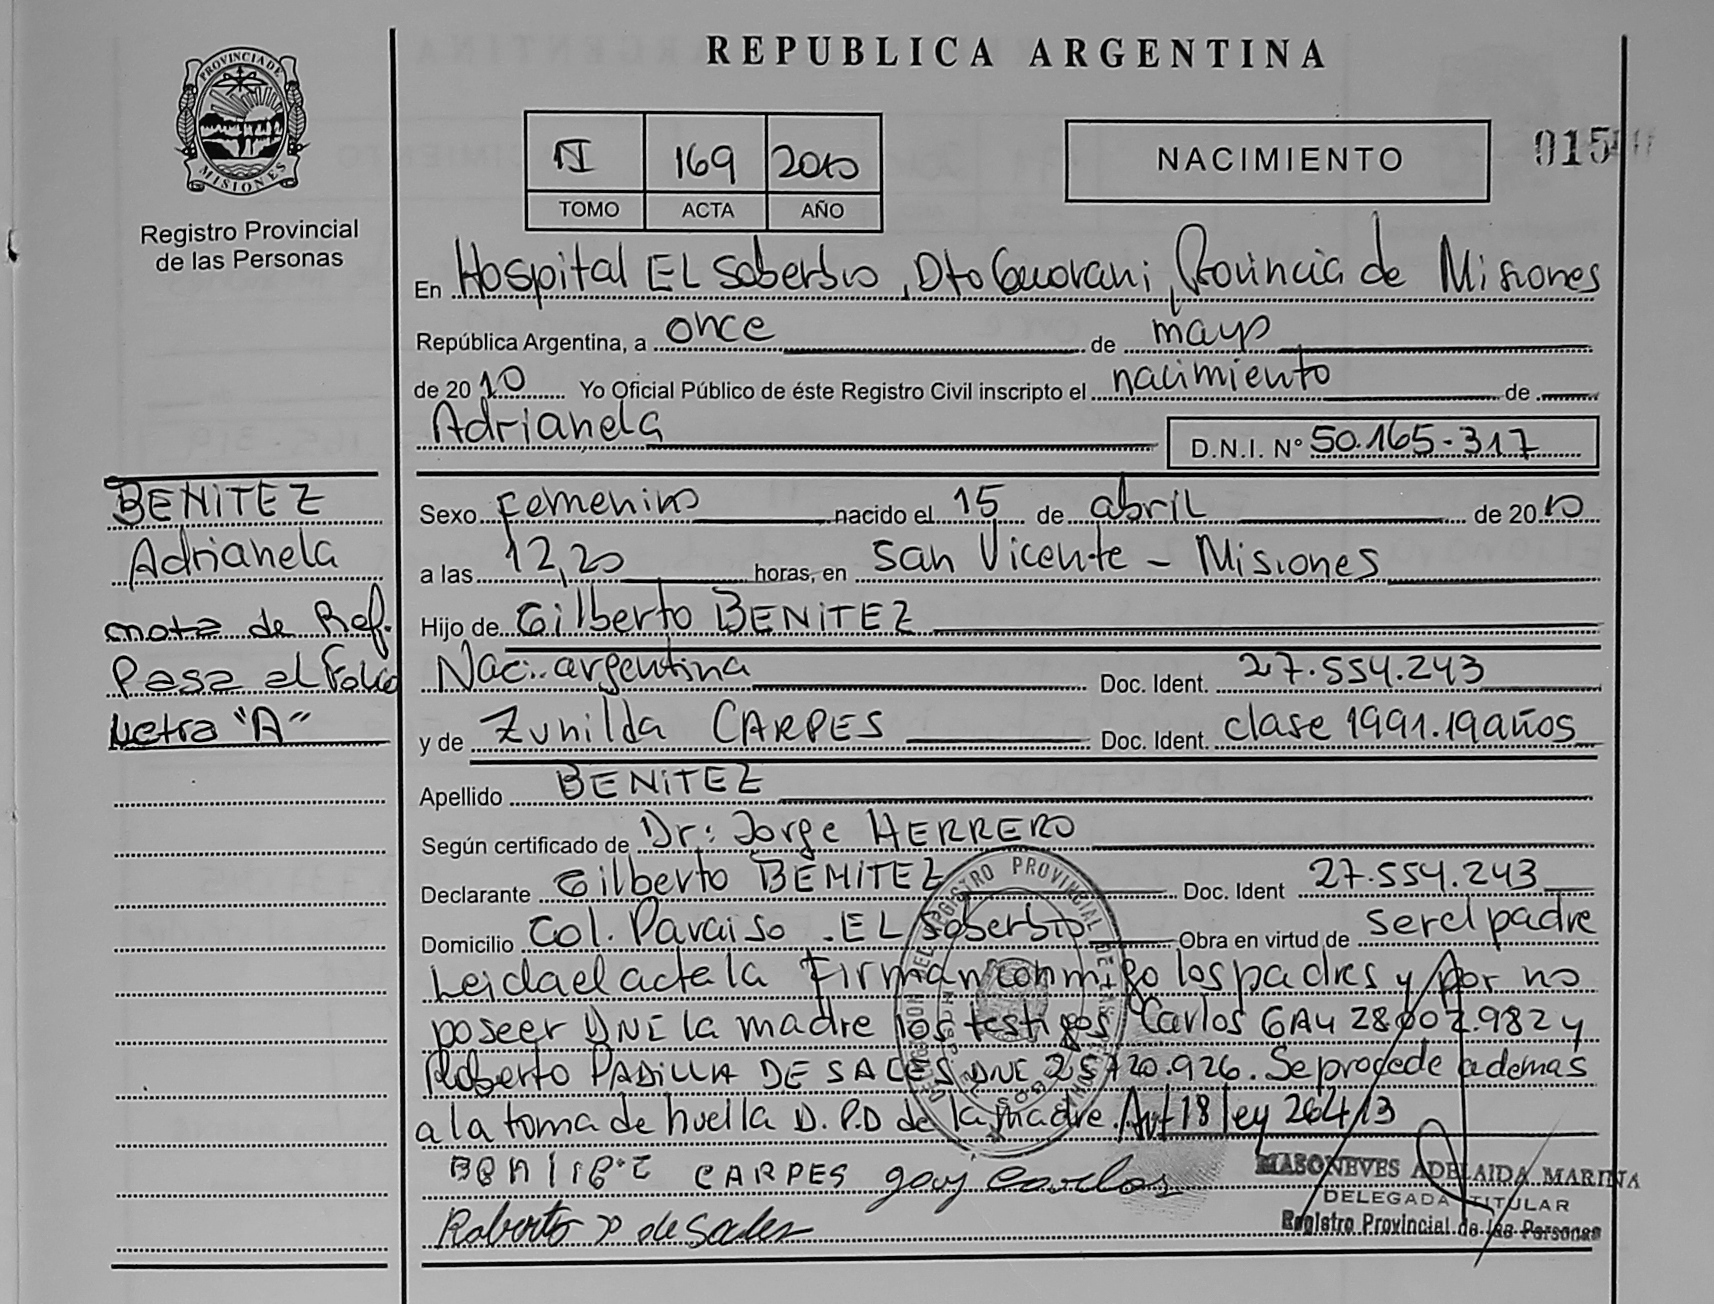 REPUBLICA ARGENTINA
PROVINCIA DE MISIONES
Registro Provincial
de las Personas
II 169 2010
TOMO ACTA AÑO
NACIMIENTO
015
En Hospital EL Soberbio, Dto Guarani, Provincia de Misiones
República Argentina, a once de mayo
de 2010 Yo Oficial Público de éste Registro Civil inscripto el nacimiento de
Adrianela D.N.I. Nº 50.165-317
BENITEZ
Adrianela
nota de Ref.
Pasa al Folio
Letra "A"
Sexo Femenino nacido el 15 de abril de 2010
a las 12,20 horas, en San Vicente - Misiones
Hijo de Gilberto BENITEZ
Nac.: argentina Doc. Ident. 27.554.243
y de Zunilda CARPES Doc. Ident. clase 1991.19 años
Apellido BENITEZ
Según certificado de Dr: Jorge HERRERO
Declarante Gilberto BENITEZ Doc. Ident 27.554.243
Domicilio Col. Paraiso . EL Soberbio Obra en virtud de ser el padre
Leida el acta la firman conmigo los padres y por no
poseer DNI la madre los testigos Carlos GAY 28.007.982 y
Roberto PADILLA DE SALES DNI 25.720.926. Se procede ademas
a la toma de huella D. P.D de la madre. Art 18 ley 26413
BENITEZ CARPES gay Carlos
Roberto P de Sales
MASONEVES ADELAIDA MARINA
DELEGADA TITULAR
Registro Provincial de las Personas
REGISTRO PROVINCIAL DE